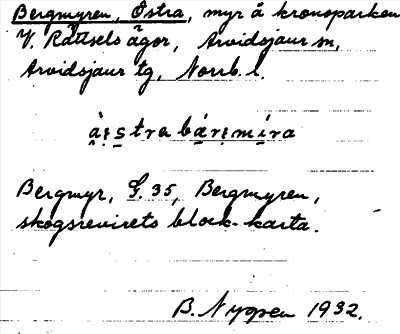 Bergmyren, Östra, myr å kronoparken
V. Rättsels ägor, Arvidsjaur sn,
Arvidsjaur tg, Norrb. l.
Bergmyr, G. 35, Bergmyren,
skogsrevirets block-karta.
B. Nygren 1932.